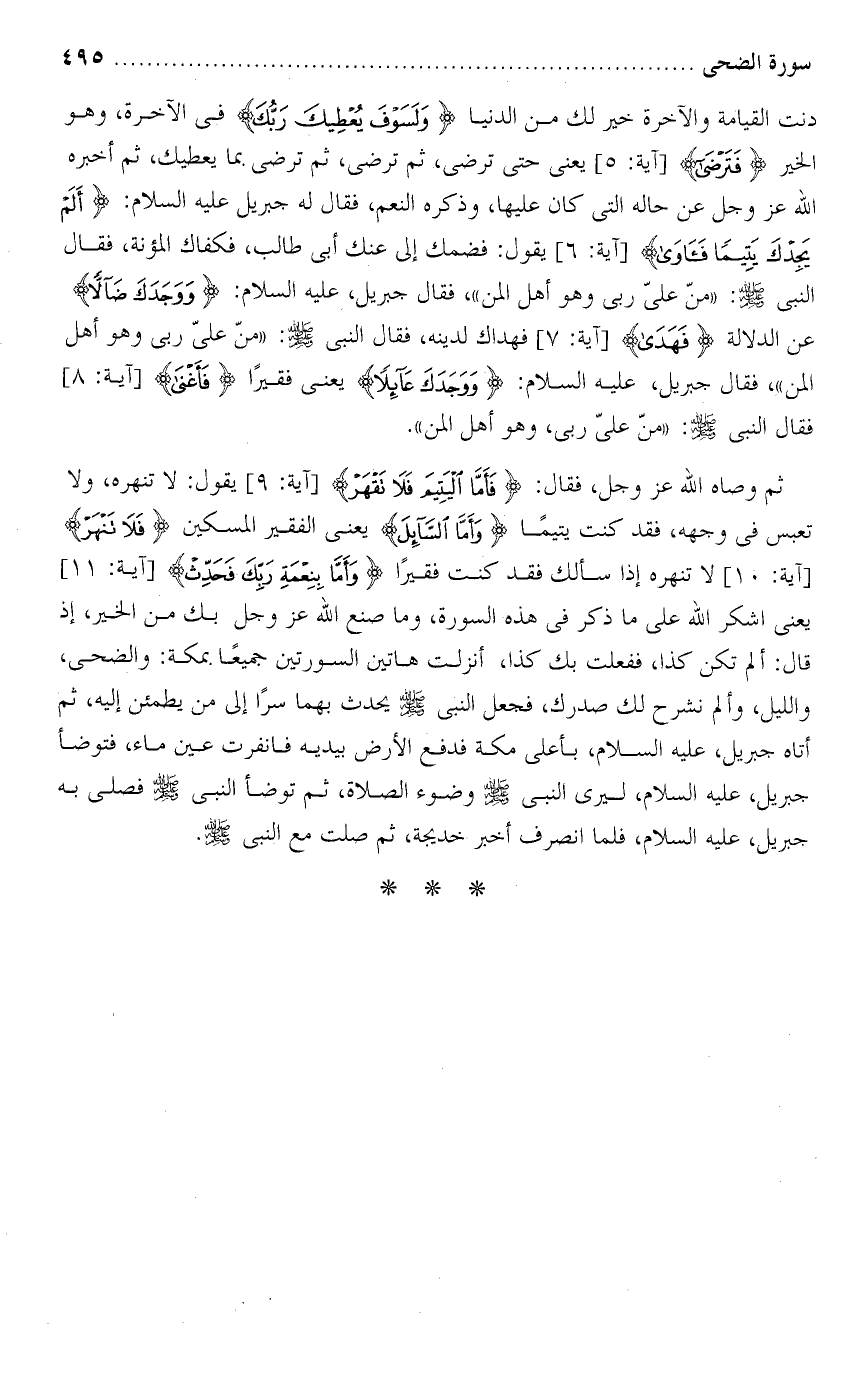 سورة الضحى ........................................................................ ٤٩٥
دنت القيامة والآخرة خير لك من الدنيا ﴿ وَلَسَوْفَ يُعْطِيكَ رَبُّكَ﴾ فى الآخرة، وهو
الخير ﴿ فَتَرْضَىٰٓ﴾ [آية: ٥] يعنى حتى ترضى، ثم ترضى، ثم ترضى بما يعطيك، ثم أخبره
الله عز وجل عن حاله التى كان عليها، وذكره النعم، فقال له جبريل عليه السلام: ﴿ أَلَمْ
يَجِدْكَ يَتِيمًا فَـَٔاوَىٰ﴾ [آية: ٦] يقول: فضمك إلى عنك أبى طالب، فكفاك المؤنة، فقال
النبى ﷺ: «منّ علىّ ربى وهو أهل المن»، فقال جبريل، عليه السلام: ﴿ وَوَجَدَكَ ضَآلًّا﴾
عن الدلالة ﴿ فَهَدَىٰ﴾ [آية: ٧] فهداك لدينه، فقال النبى ﷺ: «منّ علىّ ربى وهو أهل
المن»، فقال جبريل، عليه السلام: ﴿ وَوَجَدَكَ عَآئِلًا﴾ يعنى فقيرًا ﴿ فَأَغْنَىٰ﴾ [آية: ٨]
فقال النبى ﷺ: «منّ علىّ ربى، وهو أهل المن».
ثم وصاه الله عز وجل، فقال: ﴿ فَأَمَّا ٱلْيَتِيمَ فَلَا تَقْهَرْ﴾ [آية: ٩] يقول: لا تنهره، ولا
تعبس فى وجهه، فقد كنت يتيمًا ﴿ وَأَمَّا ٱلسَّآئِلَ﴾ يعنى الفقير المسكين ﴿ فَلَا تَنْهَرْ﴾
[آية: ١٠] لا تنهره إذا سألك فقد كنت فقيرًا ﴿ وَأَمَّا بِنِعْمَةِ رَبِّكَ فَحَدِّثْ﴾ [آية: ١١]
يعنى اشكر الله على ما ذكر فى هذه السورة، وما صنع الله عز وجل بك من الخير، إذ
قال: ألم تكن كذا، ففعلت بك كذا، أنزلت هاتين السورتين جميعًا بمكة: والضحى،
والليل، وألم نشرح لك صدرك، فجعل النبى ﷺ يحدث بهما سرًا إلى من يطمئن إليه، ثم
أتاه جبريل، عليه السلام، بأعلى مكة فدفع الأرض بيديه فانفرت عين ماء، فتوضأ
جبريل، عليه السلام، ليرى النبى ﷺ وضوء الصلاة، ثم توضأ النبى ﷺ فصلى به
جبريل، عليه السلام، فلما انصرف أخبر خديجة، ثم صلت مع النبى ﷺ.
* * *